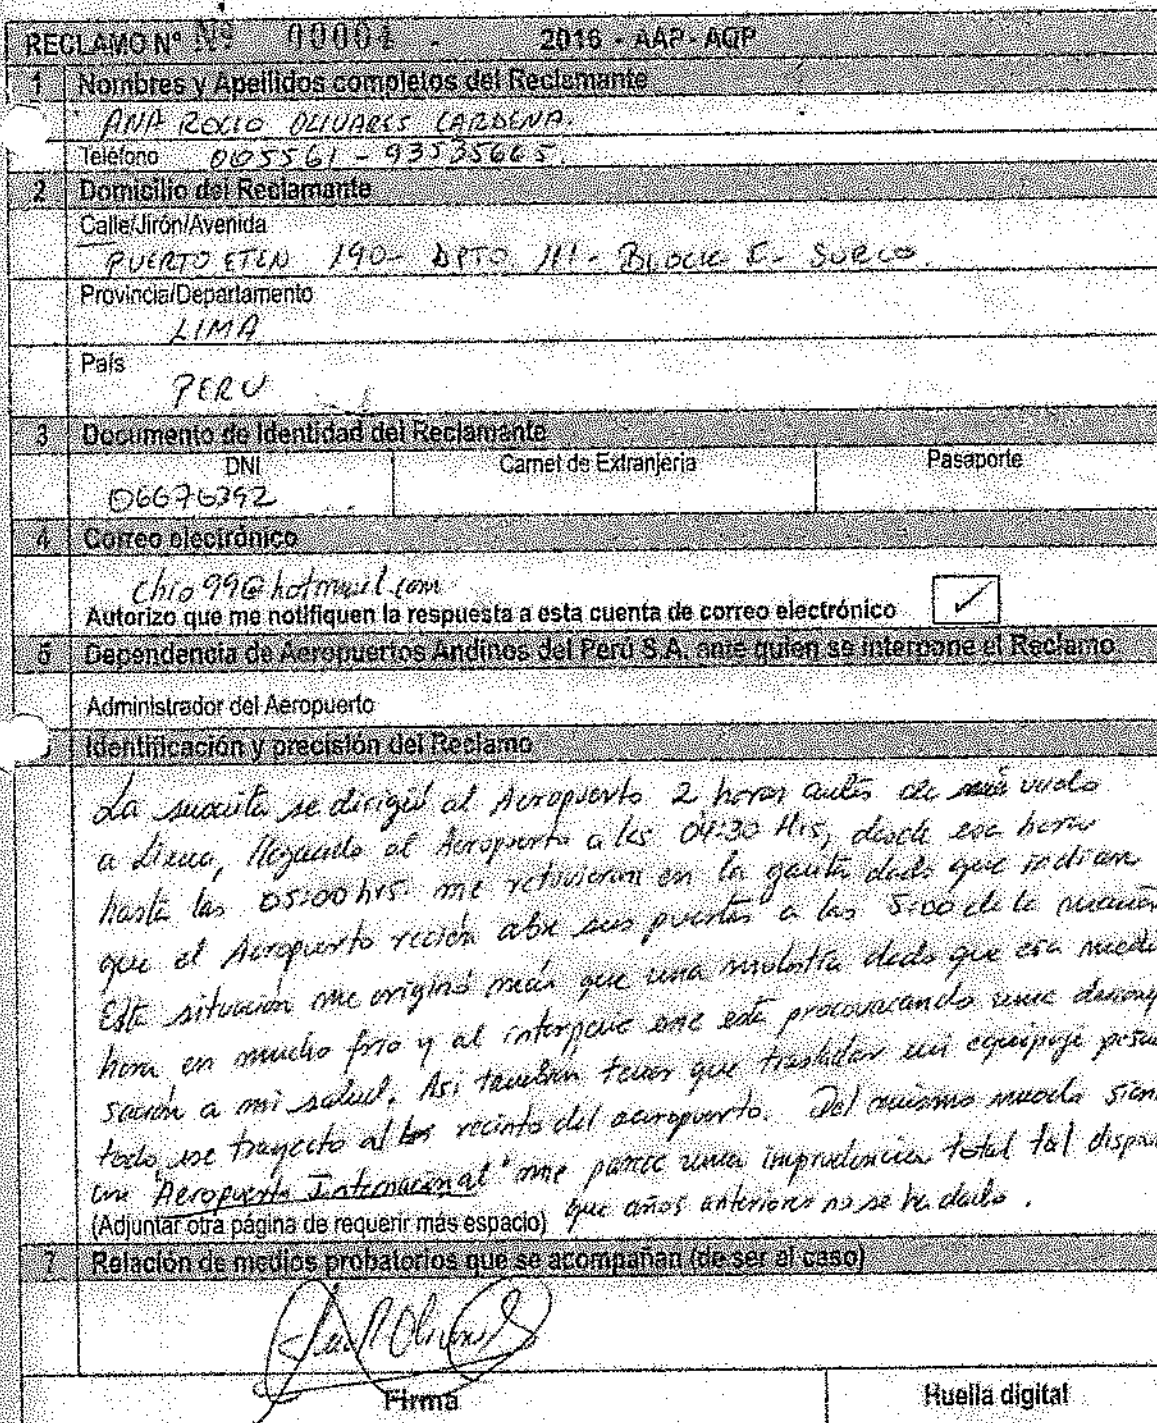 RECLAMO Nº Nº 00001 - 2016 - AAP - AQP
1 Nombres y Apellidos completos del Reclamante
ANA ROCIO OLIVARES CARDENA.
Teléfono 005561 - 93535665.
2 Domicilio del Reclamante
Calle/Jirón/Avenida
PUERTO ETEN 190- DPTO 111 - BLOCK E- SURCO.
Provincia/Departamento
LIMA
País
PERU
3 Documento de Identidad del Reclamante
DNI Carnet de Extranjeria Pasaporte
06676392
4 Correo electrónico
chio99@hotmail.com
Autorizo que me notifiquen la respuesta a esta cuenta de correo electrónico ✓
5 Dependencia de Aeropuertos Andinos del Perú S.A. ante quien se interpone el Reclamo
Administrador del Aeropuerto
Identificación y precisión del Reclamo
La suscrita se dirigió al Aeropuerto 2 horas antes de vuelo
a Lima, llegando al Aeropuerto a las 04:30 Hrs, desde esa hora
hasta las 05:00 hrs me retuvieron en la garita dado que indican
que el Aeropuerto recién abre sus puertas a las 5:00 de la mañana
Esta situación me originó más que una molestia dado que esa media
hora en mucho frio y al me está provocando una
a mi salud. Asi tambien tener que trasladar mi equipaje
todo ese trayecto al recinto del aeropuerto. Del mismo modo
un "Aeropuerto Internacional" me parece una imprudencia total tal
(Adjuntar otra página de requerir más espacio) que años anteriores no se ha dado.
7 Relación de medios probatorios que se acompañan (de ser el caso)
Firma Huella digital